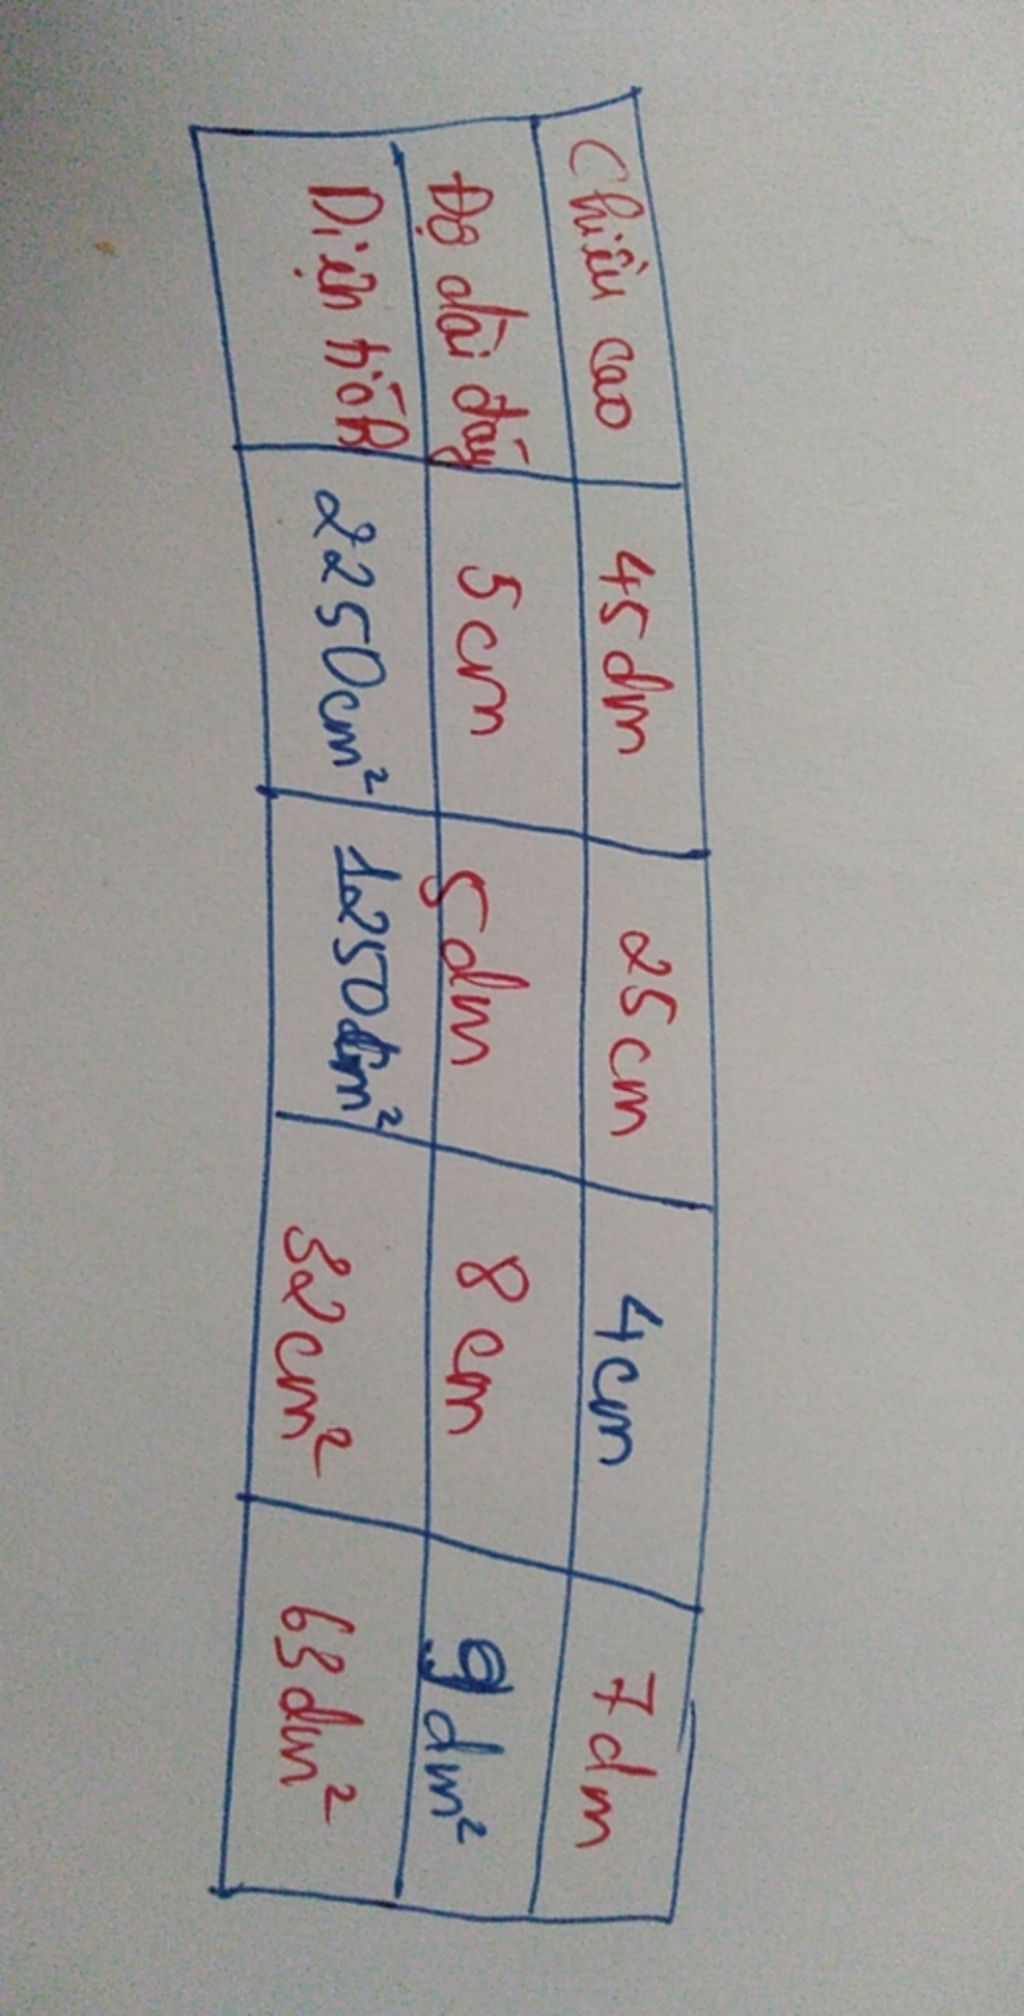 Chiều cao 45dm 25cm 4cm 7dm
Độ dài đáy 5cm 5dm 8cm 9dm²
Diện tích 2250cm² 1250cm² 32cm² 63dm²